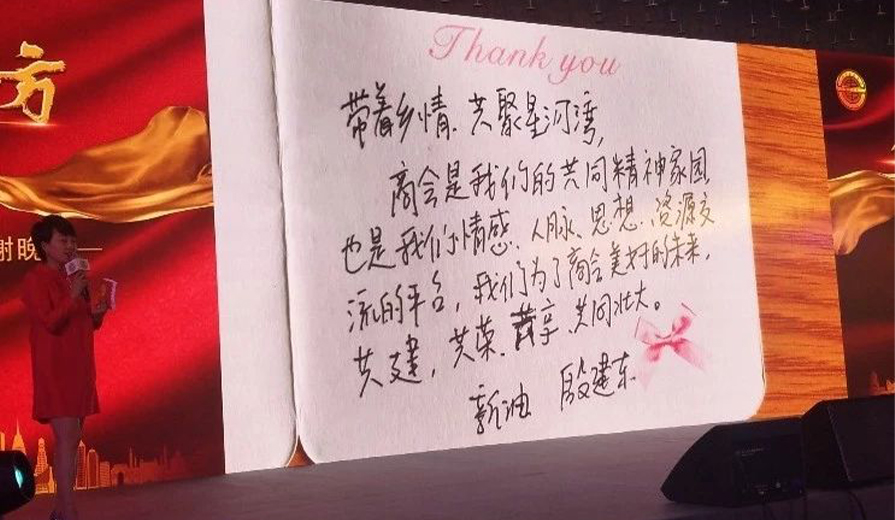 Thank you
带着乡情、共聚星河湾,
商会是我们的共同精神家园
也是我们情感、人脉、思想、资源交
流的平台，我们为了商会美好的未来,
共建，共荣、共享、共同壮大。
新油 殷建东
方
谢晚